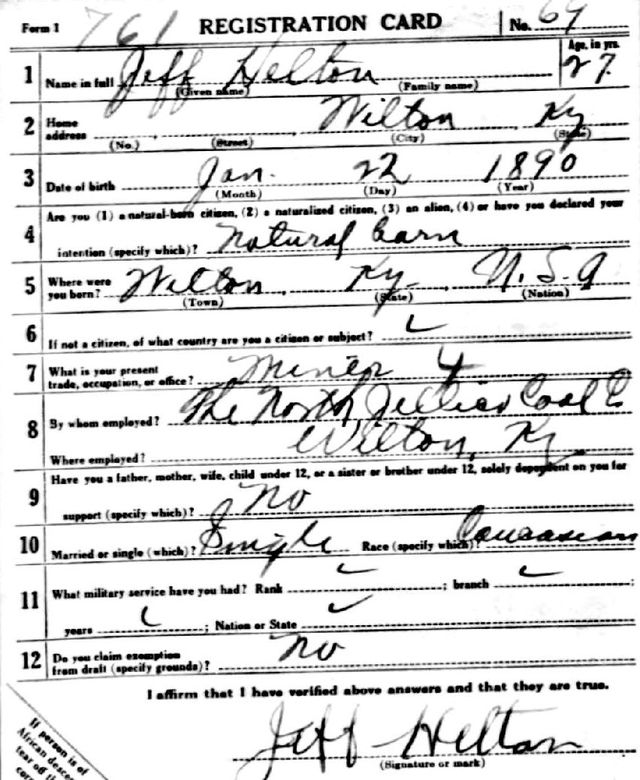 Form 1 761 REGISTRATION CARD No. 69
1 Name in full Jeff Helton Age, in yrs. 27
(Given name) (Family name)
2 Home address Wilton Ky
(No.) (Street) (City) (State)
3 Date of birth Jan. 22 1890
(Month) (Day) (Year)
Are you (1) a natural-born citizen, (2) a naturalized citizen, (3) an alien, (4) or have you declared your
4 intention (specify which)? Natural barn
5 Where were you born? Wilton, Ky. U.S.A
(Town) (State) (Nation)
6 If not a citizen, of what country are you a citizen or subject?
7 What is your present trade, occupation, or office? Miner 4
8 By whom employed? The North Jellico Coal C
Where employed? Wilton, Ky
Have you a father, mother, wife, child under 12, or a sister or brother under 12, solely dependent on you for
9 support (specify which)? No
10 Married or single (which)? Single Race (specify which)? Caucasian
11 What military service have you had? Rank ; branch ;
years ; Nation or State
12 Do you claim exemption from draft (specify grounds)? No
I affirm that I have verified above answers and that they are true.
Jeff Helton
(Signature or mark)
If person is of
African desce
tear off th
corn